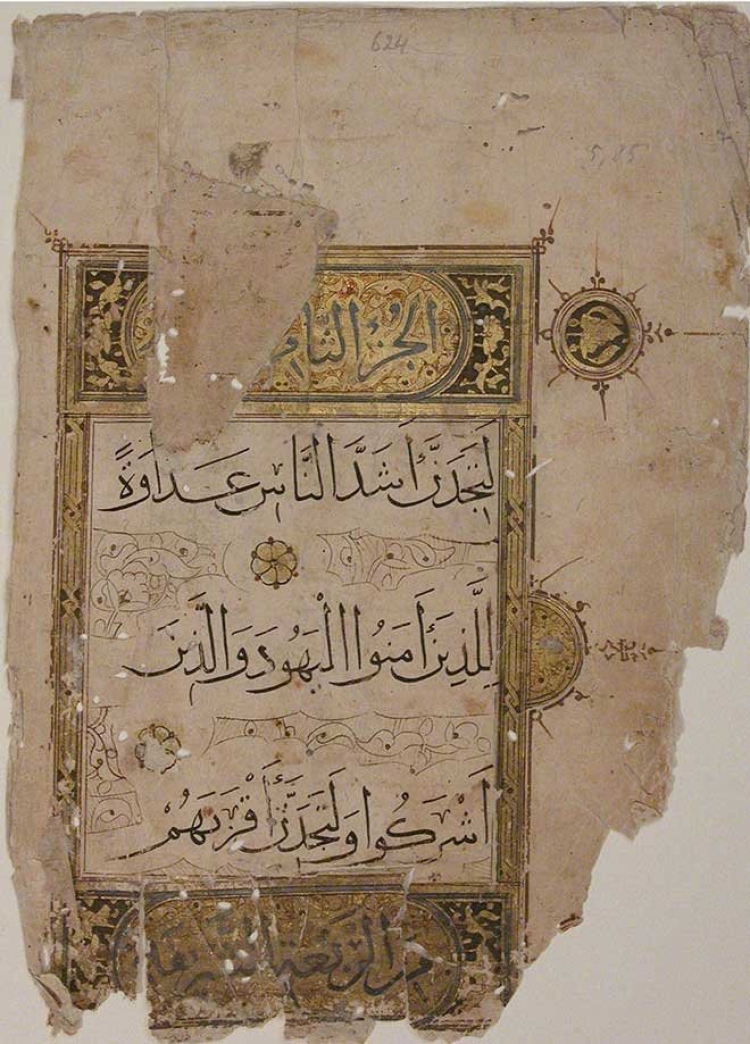 624
الجُزءُ الثَّام
لَتَجِدَنَّ أَشَدَّ النَّاسِ عَدَاوَةً
لِلَّذِينَ أَمَنُوا الْيَهُودَ وَالَّذِينَ
أَشْرَكُوا وَلَتَجِدَنَّ أَقْرَبَهُمْ
مِنَ الرَّبْعَةِ الشَّرِيفَة